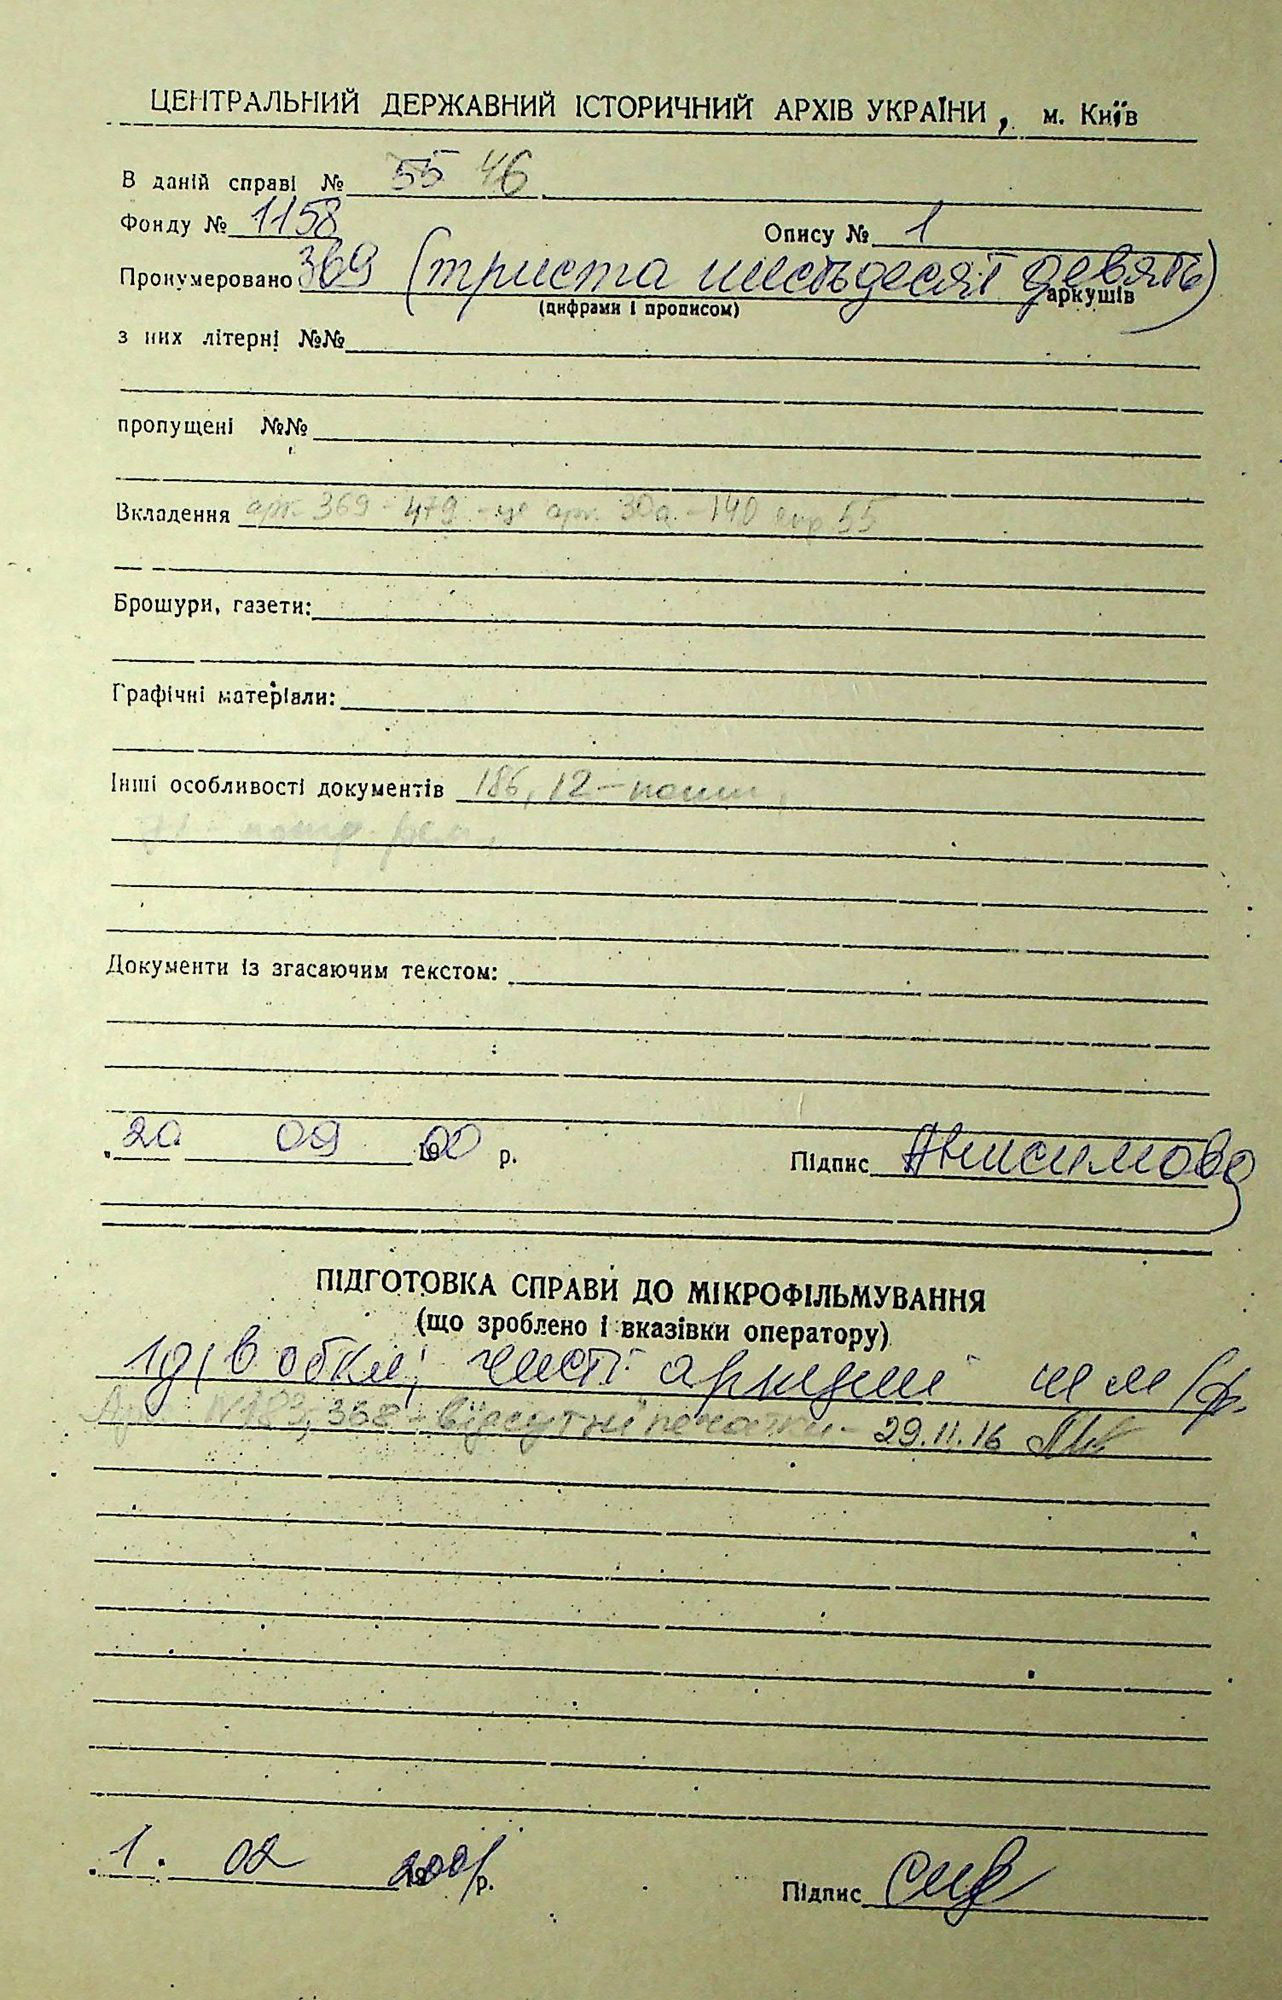 ЦЕНТРАЛЬНИЙ ДЕРЖАВНИЙ ІСТОРИЧНИЙ АРХІВ УКРАЇНИ, м. Київ
В даній справі № 55 46
Фонду № 1158 Опису № 1
Пронумеровано 369 (триста шестьдесят девять) аркушів
(цифрами і прописом)
з них літерні №№
пропущені №№
Вкладення арк. 369-479 - це арк. 30а - 140 спр 55
Брошури, газети:
Графічні матеріали:
Інші особливості документів 186, 12-
71-
Документи із згасаючим текстом:
20 09 00 р. Підпис Анисимова
ПІДГОТОВКА СПРАВИ ДО МІКРОФІЛЬМУВАННЯ
(що зроблено і вказівки оператору)
в обкл; чисті аркуші
Арк. №183, 338 - відсутні печатки - 29.11.16
1. 02 2001 р. Підпис